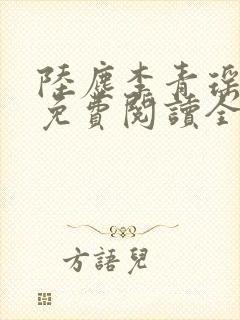 陸塵李青瑤
免費閱讀全
方語兒